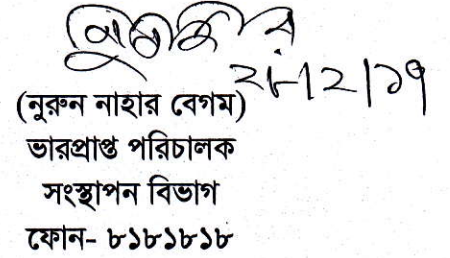 ২৮/২/১৭
(নুরুন নাহার বেগম)
ভারপ্রাপ্ত পরিচালক
সংস্থাপন বিভাগ
ফোন- ৮১৮১৮১৮